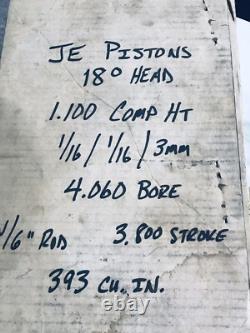 JE PISTONS
18° HEAD
1.100 COMP HT
1/16 / 1/16 / 3mm
4.060 BORE
/6" ROD 3.800 STROKE
393 CU. IN.